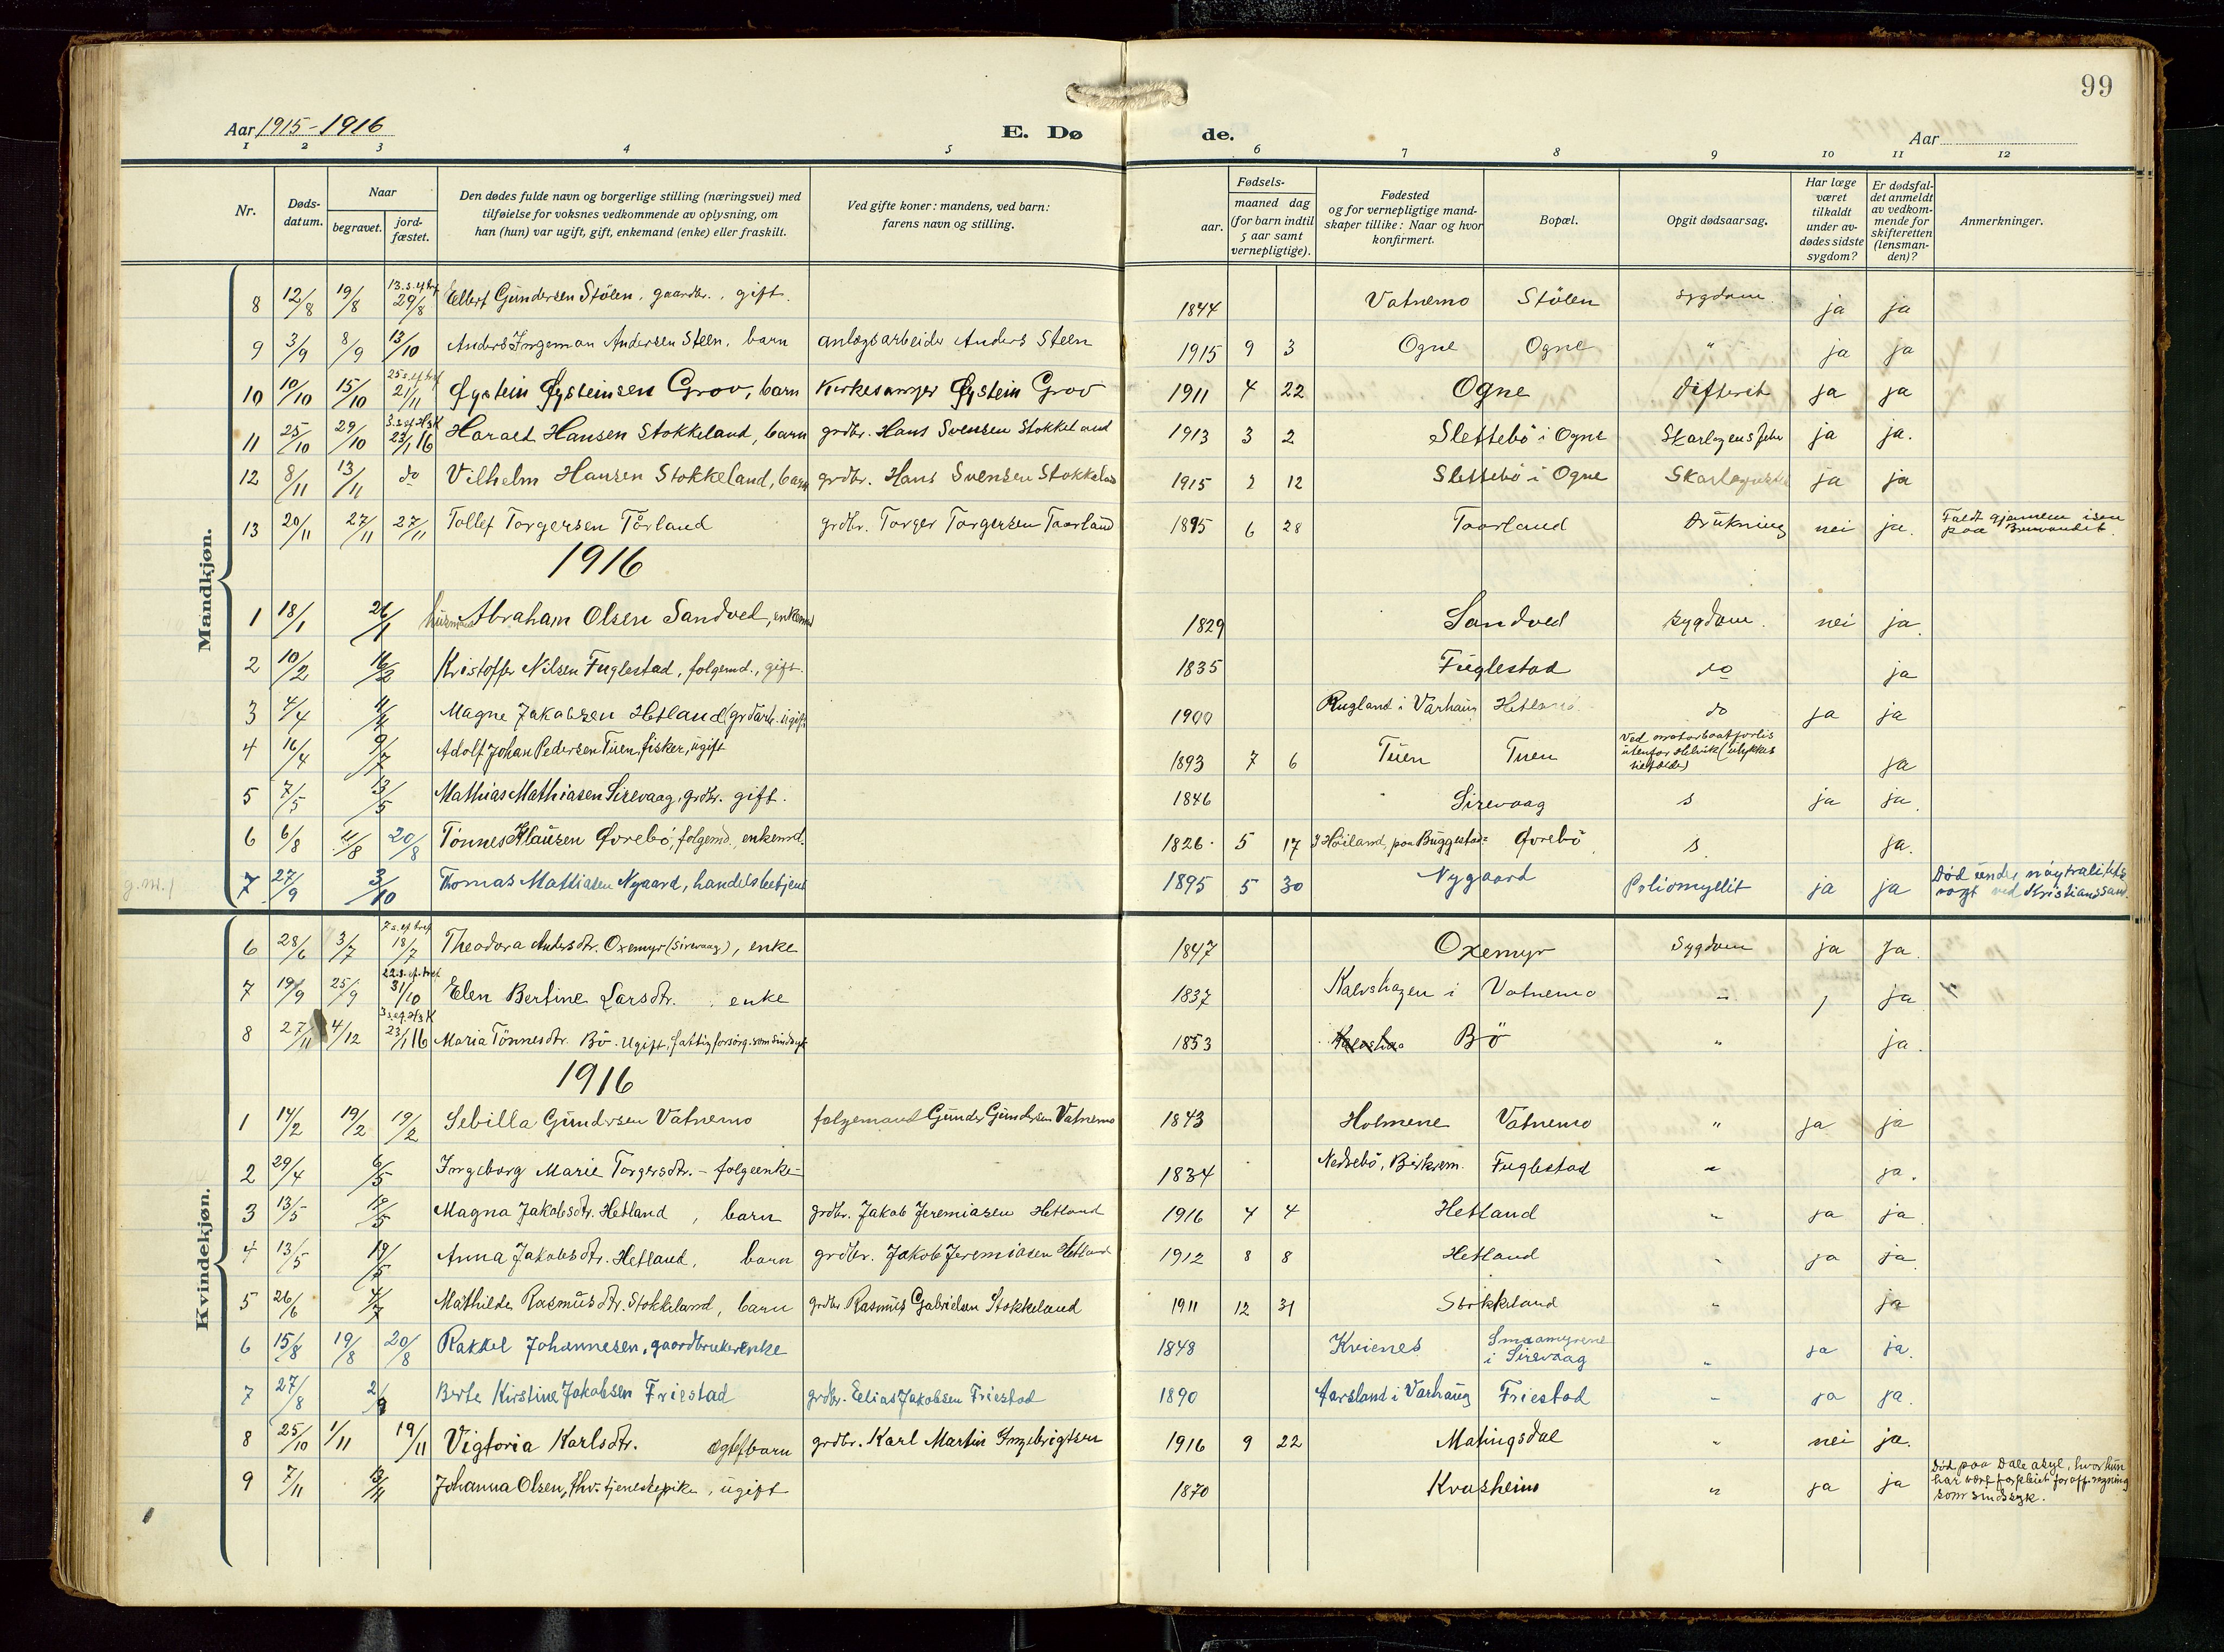 99
Aar 1915-1916 E. Dø de. Aar
1 2 3 4 5 6 7 8 9 10 11 12
Nr. Døds-datum. Naar begravet. jord-fæstet. Den dødes fulde navn og borgerlige stilling (næringsvei) med tilføielse for voksnes vedkommende av oplysning, om han (hun) var ugift, gift, enkemand (enke) eller fraskilt. Ved gifte koner: mandens, ved barn: farens navn og stilling. Fødsels- aar. maaned dag (for barn indtil 5 aar samt vernepligtige). Fødested og for vernepligtige mand-skaper tillike: Naar og hvor konfirmert. Bopæl. Opgit dødsaarsag. Har læge været tilkaldt under av-dødes sidste sygdom? Er dødsfal-det anmeldt av vedkom-mende for skifteretten (lensman-den)? Anmerkninger.
Mandkjøn.
8 12/8 19/8 13. s. ef. tref 29/8 Ellert Gundersen Stölen, gaardbr., gift. 1844 Vatnemo Stölen sygdom ja ja
9 3/9 8/9 13/10 Anders Ingeman Andersen Steen, barn anlægsarbeider Anders Steen 1915 9 3 Ogne Ogne " ja ja
10 10/10 15/10 25 s. ef. tref 21/11 Øystein Øysteinsen Grov, barn Kirkesanger Øystein Grov 1911 4 22 Ogne difterit ja ja
11 25/10 29/10 3. s. ef. H3K 23/1 16 Harald Hansen Stokkeland, barn grdbr. Hans Svensen Stokkeland 1913 3 2 Slettebö i Ogne Skarlagensfeber ja ja.
12 8/11 13/11 do Vilhelm Hansen Stokkeland, barn grdbr. Hans Svensen Stokkeland 1915 2 12 Slettebö i Ogne ja ja
13 20/11 27/11 27/11 Tollef Torgersen Tårland grdbr. Torger Torgersen Taarland 1895 6 28 Taarland Drukning nei ja. Faldt gjennem isen paa
1916
1 18/1 26/1 Abraham Olsen Sandved, enkemd 1829 Sandved sygdom. nei ja.
2 10/2 16/2 Kristoffer Nilsen Fuglestad, folgemd., gift. 1835 Fuglestad do ja
3 4/4 11/4 Magne Jakobsen Hetland, grdarb. ugift 1900 Rugland i Varhaug Hetland do ja ja
4 16/4 9/7 Adolf Johan Pedersen Tuen, fisker, ugift 1893 7 6 Tuen Tuen Ved motorbaatforlis utenfor (ulykkes ja
5 7/5 13/5 Mathias Mathiasen Sirevaag, grdbr. gift. 1846 Sirevaag s ja ja.
6 6/8 11/8 20/8 Tönnes Klausen Øvrebö, folgemd., enkemd. 1826 5 17 I Höiland, paa Buggestad Øvrebö s ja.
g.m. 7 27/9 3/10 Thomas Mattiasen Nygaard, handelsbetjent 1895 5 30 Nygaard Poliomyelit ja ja Död under nöytralitets vagt ved Kristianssand.
Kvindekjøn.
6 28/6 3/7 7 s. ef. tref 18/7 Theodora Andersdtr. Oxemyr (Sirevaag), enke 1847 Oxemyr Sygdom ja ja.
7 19/9 25/9 22. s. ef. tref 31/10 Elen Bertine Larsdtr. enke 1837 Kalvshagen i Vatnemo " ja
8 27/11 4/12 3 s. ef. H3K 23/1 16 Maria Tönnesdtr. Bö. Ugift, fattigforsörg. som sindssyk 1853 Bö " ja.
1916
1 14/2 19/2 19/2 Sebilla Gundersen Vatnemo folgemand Gunder Gundersen Vatnemo 1843 Holmene Vatnemo " ja ja
2 29/4 6/5 Ingeborg Marie Torgersdtr. - folgeenke - 1834 Nedrebö, Birkrem. Fuglestad " ja.
3 13/5 19/5 Magna Jakobsdtr. Hetland, barn grdbr. Jakob Jeremiasen Hetland 1916 4 4 Hetland " ja ja
4 13/5 19/5 Anna Jakobsdtr. Hetland, barn grdbr. Jakob Jeremiasen Hetland 1912 8 8 Hetland " ja ja.
5 26/6 4/7 Mathilde Rasmusdtr. Stokkeland, barn grdbr Rasmus Gabrielsen Stokkeland 1911 12 31 Stokkeland " ja
6 15/8 19/8 20/8 Rakkel Johannesen, gaardbrukerenke 1848 Kvienes Smaamyrene i Sirevaag " ja ja.
7 27/8 2/9 Berte Kirstine Jakobsen Friestad grdbr. Elias Jakobsen Friestad 1890 Aarsland i Varhaug Friestad " ja ja.
8 25/10 1/11 19/11 Vigtoria Karlsdtr. ægtef. barn grdbr. Karl Martin Ingebrigtsen 1916 9 22 Matingsdal " nei ja.
9 7/11 13/11 Johanna Olsen, fhv. tjenestepike, ugift 1870 Kvasheim " ja ja Död paa Dale asyl, hvor hun har været forpleiet for off. regning som sindssyk.